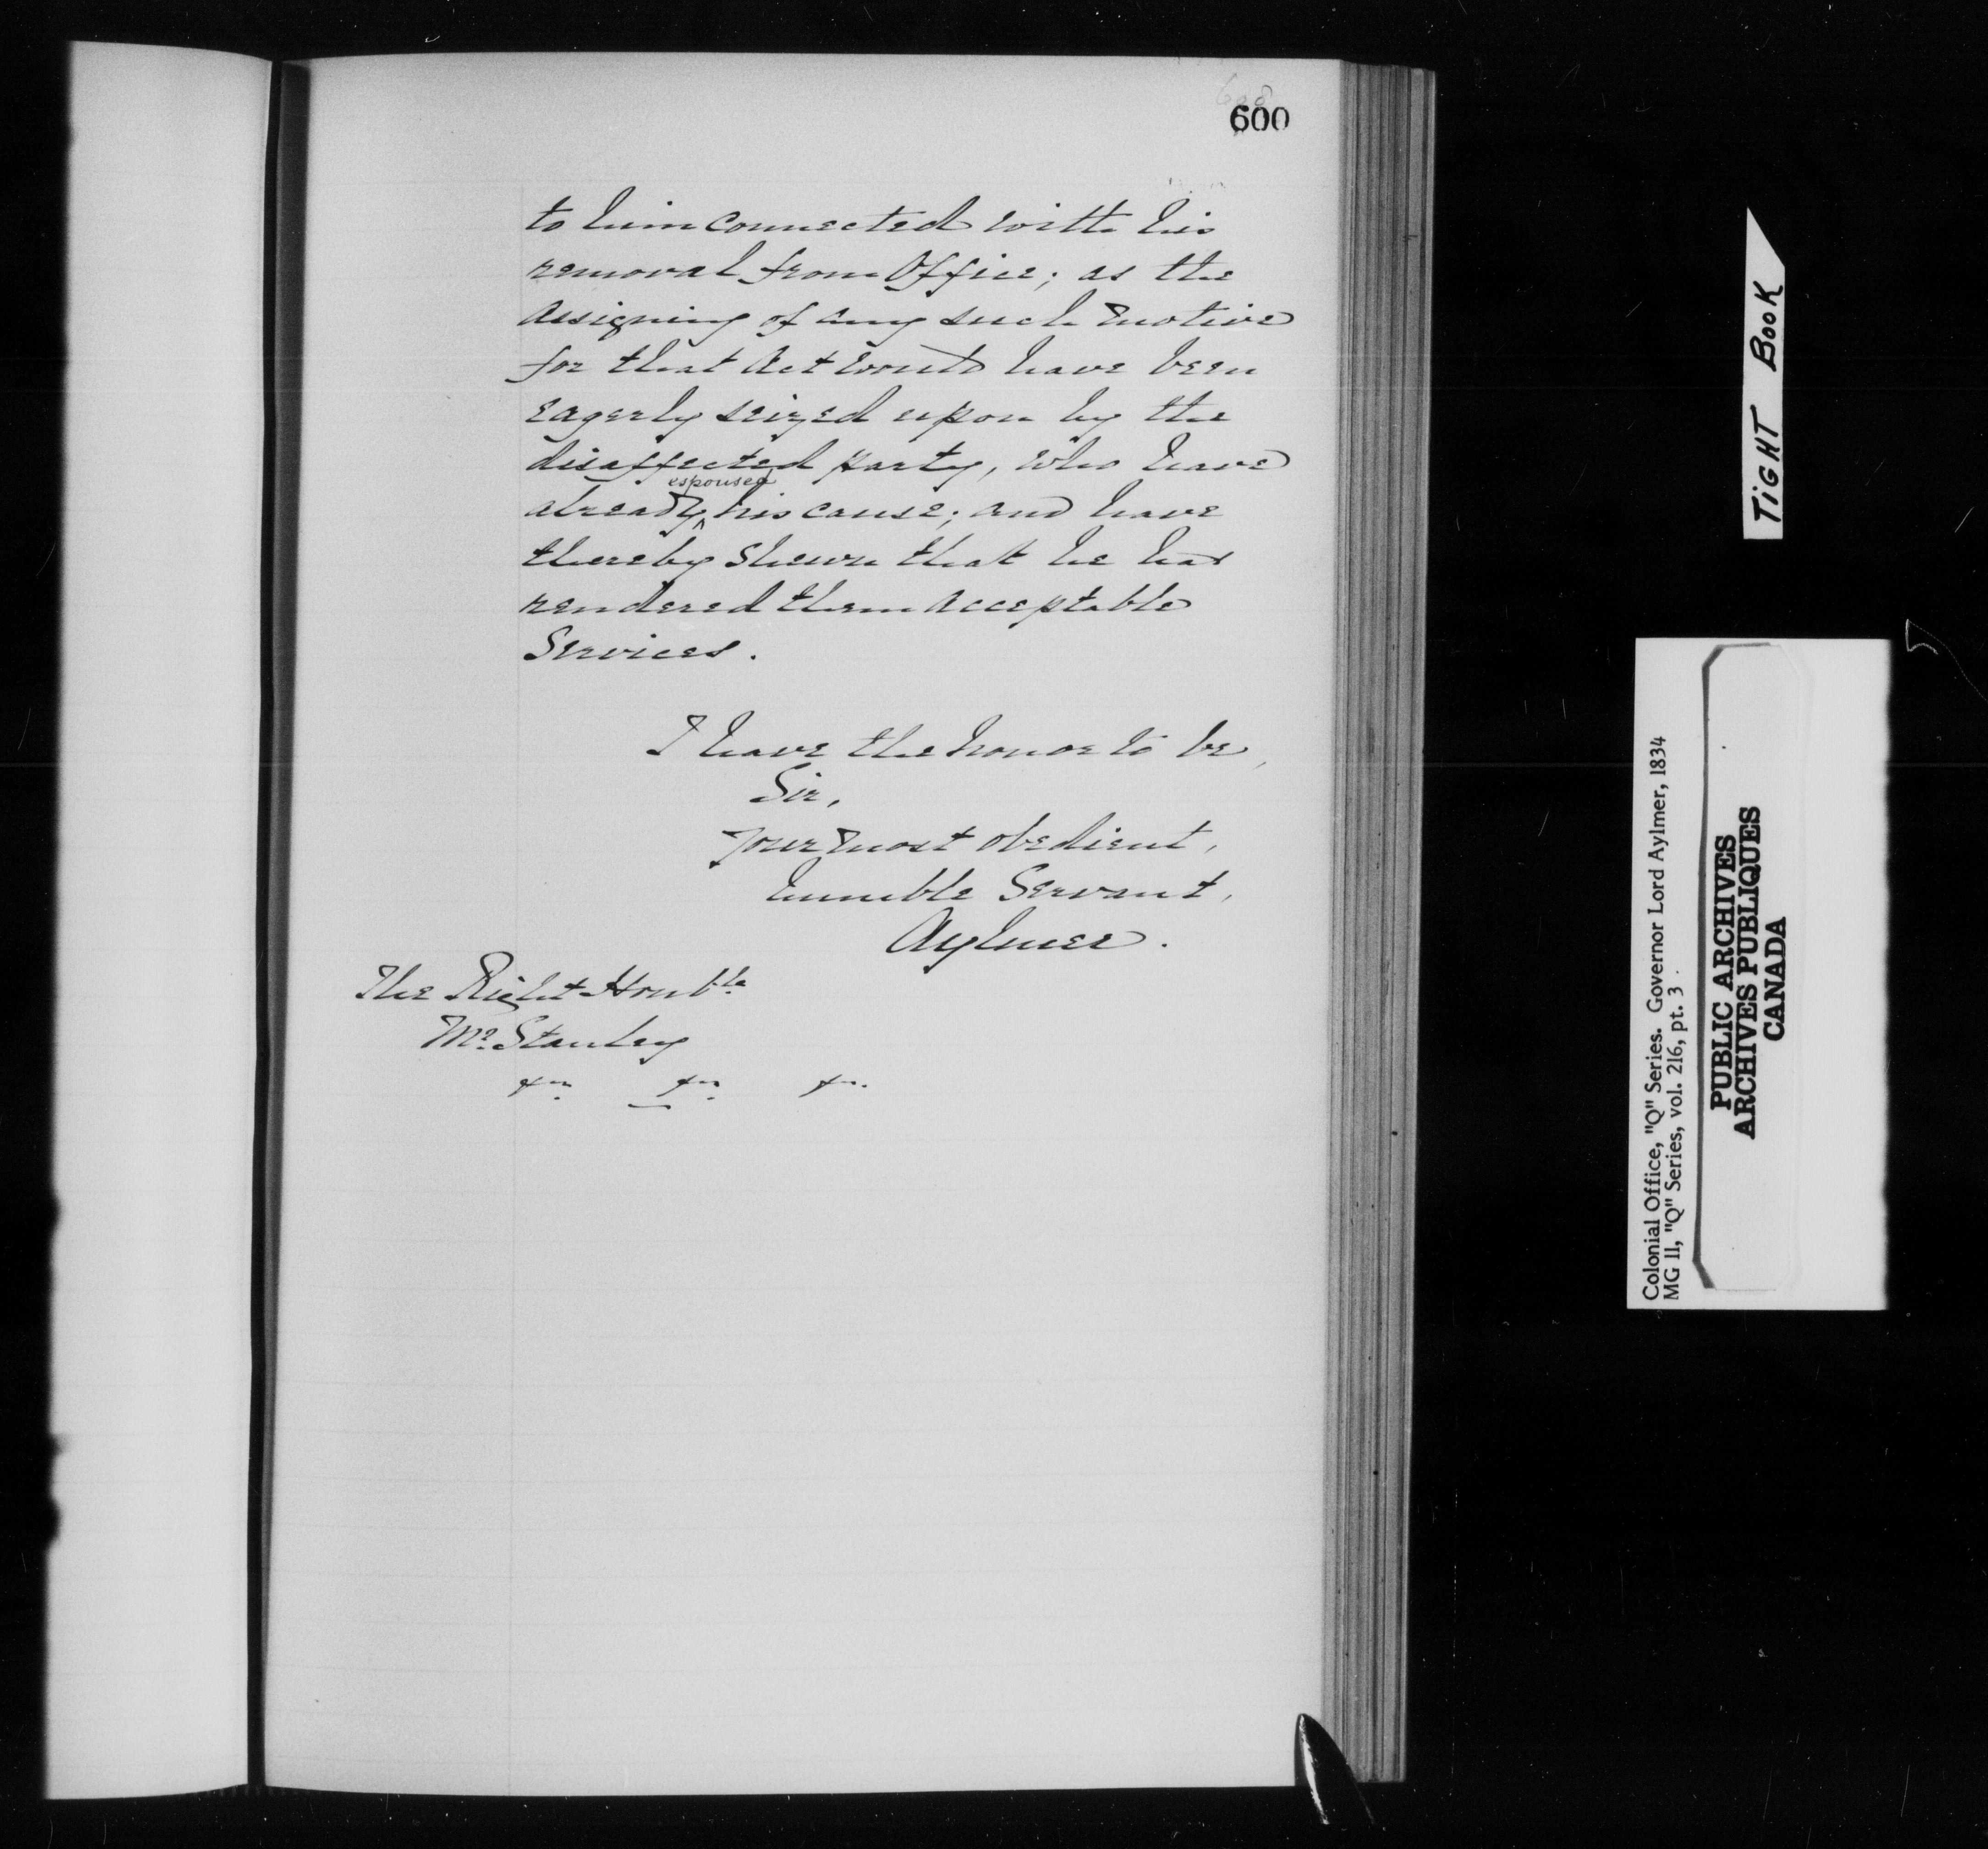 600
to him connected with his
removal from Office; as the
assigning of any such motive
for that Act would have been
eagerly seized upon by the
disaffected party, who have
already espoused his cause; and have
thereby shewn that he has
rendered them acceptable
Services.
I have the honor to be,
Sir,
Your most obedient,
humble Servant,
Aylmer.
The Right Honble.
Mr. Stanley
&c. &c. &c.
TIGHT BOOK
Colonial Office, "Q" Series. Governor Lord Aylmer, 1834
MG 11, "Q" Series, vol. 216, pt. 3
PUBLIC ARCHIVES
ARCHIVES PUBLIQUES
CANADA